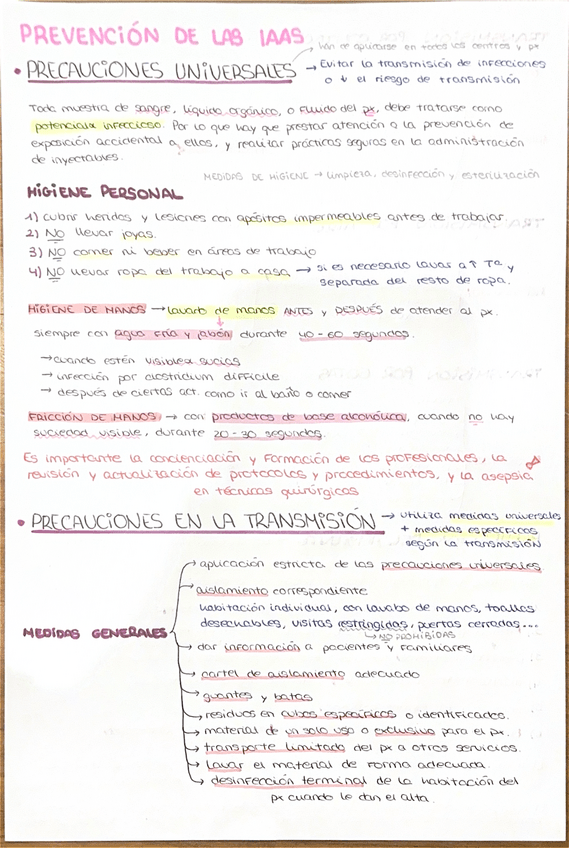 PREVENCIÓN DE LAS IAAS
han de aplicarse en todos los centros y px
• PRECAUCIONES UNIVERSALES → Evitar la transmisión de infecciones
o ↓ el riesgo de transmisión
Toda muestra de sangre, líquido orgánico, o fluido del px, debe tratarse como
potencial infeccioso. Por lo que hay que prestar atención a la prevención de
exposición accidental a ellos, y realizar prácticas seguras en la administración
de inyectables.
MEDIDAS DE HIGIENE → limpieza, desinfección y esterilización
HIGIENE PERSONAL
1) cubrir heridas y lesiones con apósitos impermeables antes de trabajar
2) NO llevar joyas.
3) NO comer ni beber en áreas de trabajo
4) NO llevar ropa del trabajo a casa → si es necesario lavar a ↑ Tª y
separada del resto de ropa.
HIGIENE DE MANOS → lavado de manos ANTES y DESPUÉS de atender al px.
siempre con agua fría y jabón durante 40-60 segundos.
→ cuando estén visible sucias
→ infección por clostridium difficile
→ después de ciertas act. como ir al baño o comer
FRICCIÓN DE MANOS → con productos de base alcohólica, cuando no hay
suciedad visible, durante 20-30 segundos.
Es importante la concienciación y formación de los profesionales, la
revisión y actualización de protocolos y procedimientos, y la asepsia
en técnicas quirúrgicas
• PRECAUCIONES EN LA TRANSMISIÓN → utiliza medidas universales
+ medidas específicas
según la transmisión
→ aplicación estricta de las precauciones universales
→ aislamiento correspondiente
habitación individual, con lavabo de manos, toallas
desechables, visitas restringidas, puertas cerradas...
→ NO PROHIBIDAS
MEDIDAS GENERALES
→ dar información a pacientes y familiares
→ cartel de aislamiento adecuado
→ guantes y batas
→ residuos en cubos específicos o identificados.
→ material de un solo uso o exclusivo para el px.
→ transporte limitado del px a otros servicios.
→ lavar el material de forma adecuada.
→ desinfección terminal de la habitación del
px cuando le dan el alta.